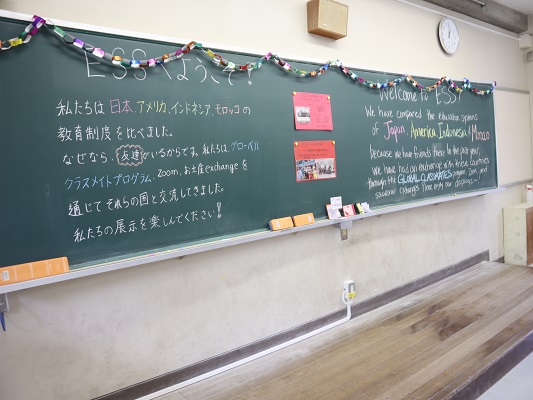 ESSへようこそ!
私たちは日本、アメリカ、インドネシア、モロッコの
教育制度を比べました。
なぜなら、友達がいるからです。私たちは、グローベル
クラスメイトプログラム、zoom、お土産exchangeを
通じてそれらの国と交流してきました。
私たちの展示を楽しんでください!
Welcome to ESS!
We have compared the education systems
of Japan, America, Indonesia, Morocco
because we have friends there! In the past year,
we have had an exchange with these countries
through the GLOBAL CLASSMATES program, Zoom, and
souvenir exchanges. Please enjoy our